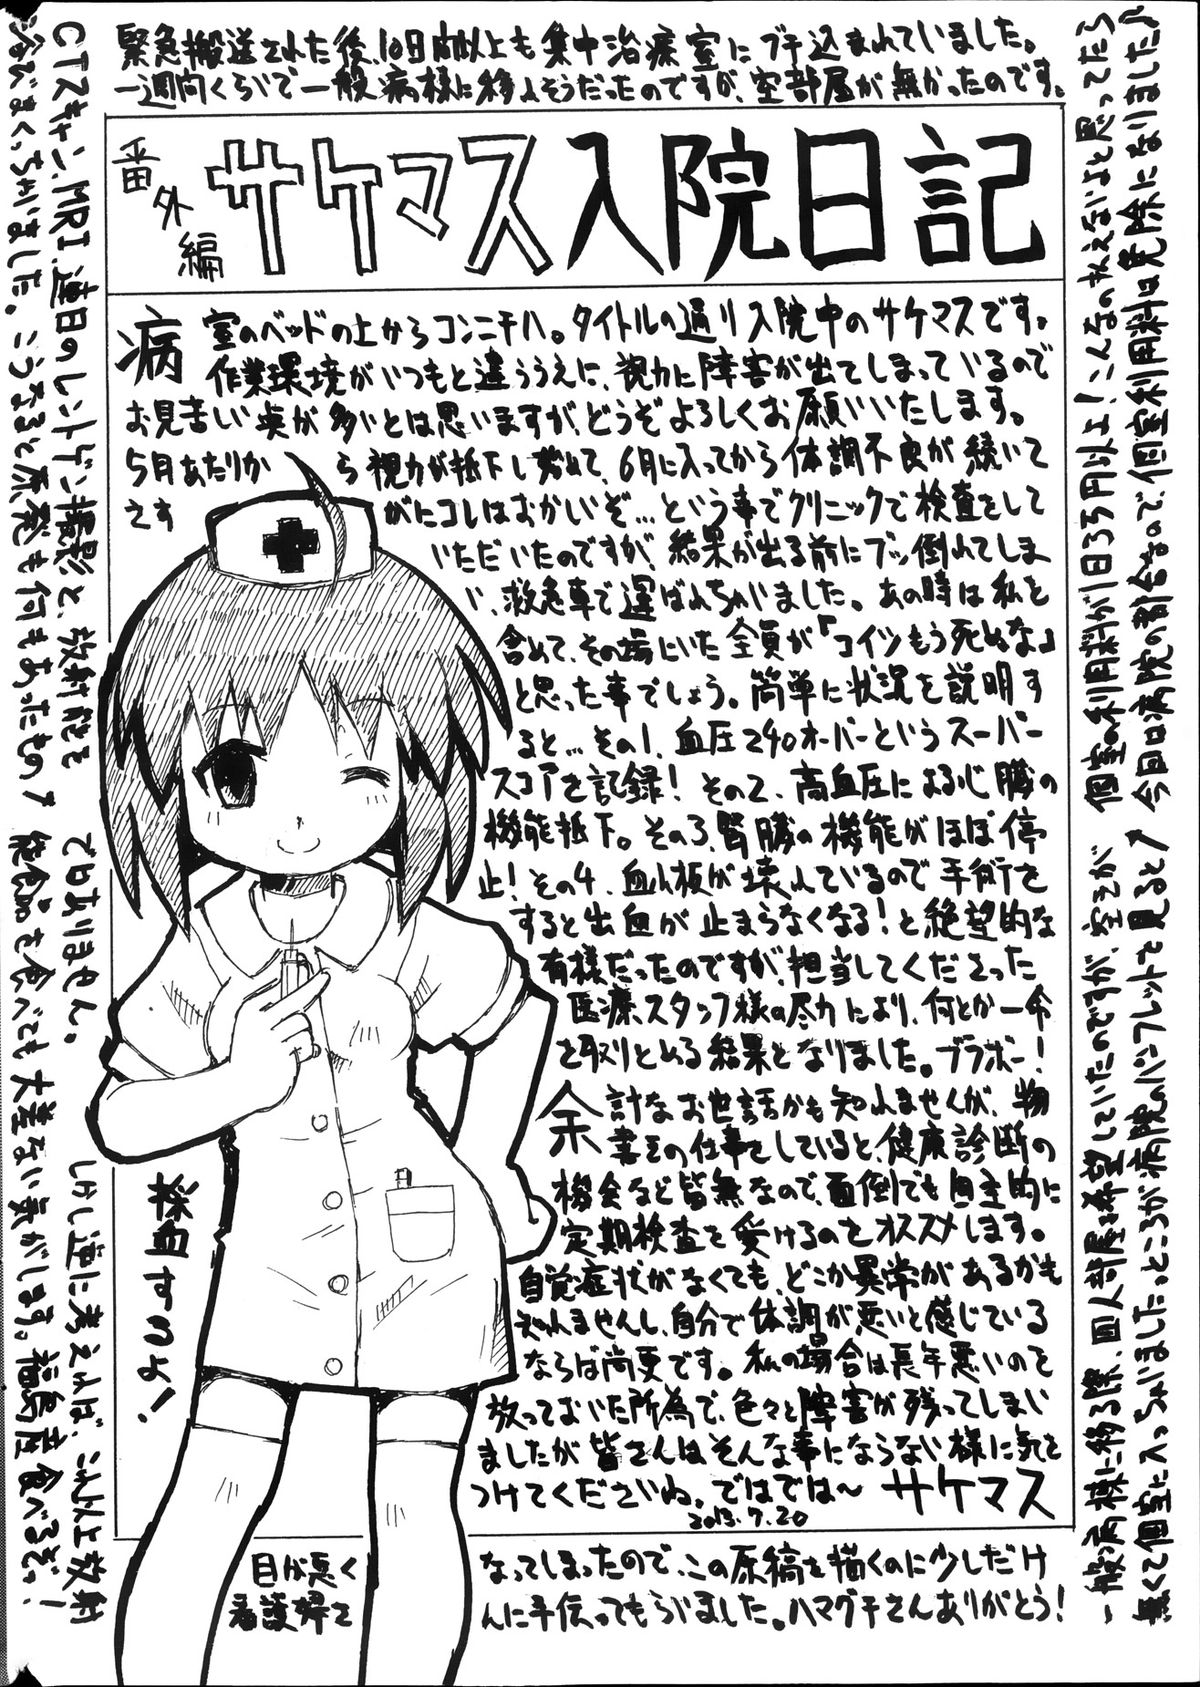 緊急搬送された後、10日間以上も集中治療室にブチ込まれていました。
一週間くらいで一般病棟に移れそうだったのですが、空部屋が無かったのです。
番外編
サケマス入院日記
病室のベッドの上からコンニチハ。タイトルの通り入院中のサケマスです。
作業環境がいつもと違ううえに、視力に障害が出てしまっているので
お見苦しい点が多いとは思いますが、どうぞよろしくお願いいたします。
5月あたりから視力が低下し始めて、6月に入ってから体調不良が続いて
さすがにコレはおかしいぞ…という事でクリニックで検査をして
いただいたのですが、結果が出る前にブッ倒れてしま
い、救急車で運ばれちゃいました。あの時は私を
含めて、その場にいた全員が「コイツもう死ぬな」
と思った事でしょう。簡単に状況を説明す
ると…その1、血圧240オーバーというスーパー
スコアを記録！その2、高血圧による心臓の
機能低下。その3、腎臓の機能がほぼ停
止！その4、血小板が壊れているので手術を
すると出血が止まらなくなる！と絶望的な
有様だったのですが、担当してくださった
医療スタッフ様の尽力により、何とか一命
を取りとめる結果となりました。ブラボー！
余計なお世話かも知れませんが、物
書きの仕事をしていると、健康診断の
機会など皆無なので、面倒でも自主的に
定期検査を受けるのをオススメします。
自覚症状がなくても、どこか異常があるかも
知れませんし、自分で体調が悪いと感じている
ならば尚更です。私の場合は長年悪いのを
放っておいた所為で、色々と障害が残ってしまい
ましたが皆さんはそんな事にならない様に気を
つけてくださいね。ではでは〜 サケマス
2013.7.20
採血するのよ、
目が悪くなってしまったので、この原稿を描くのに少しだけ
看護婦さんに手伝ってもらいました。ハマグチさんありがとう！
一般病棟に移る際、四人部屋を希望していたのですが、空きが
無くて個室に入っちゃいました。ところが病院のパンフレットで見ると↗
個室の利用料が1日3万円以上！こんなの払えないよと思ってたら
今回は病院の割合なので、個室利用料は免除になりました♪
CTスキャン、MRI、連日のレントゲン撮影と、放射能を
浴びまくっちゃいました。こうなると原発も何もあったもの
でわありません。しかし逆に考えれば、これ以上放射
能食品を食べても大差ない気がします。福島産食べるぞっ！